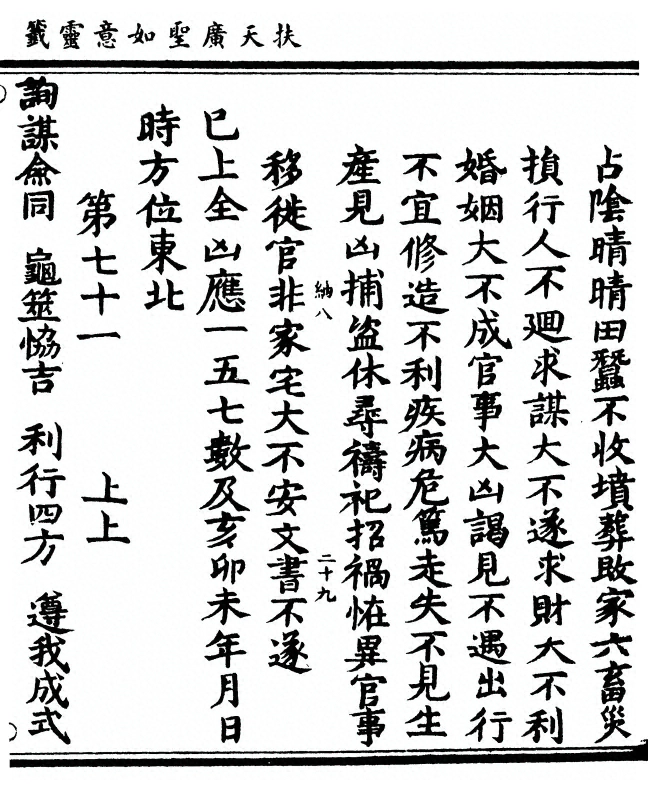 扶天廣聖如意靈籤
占陰晴晴田蠶不收墳葬敗家六畜災
損行人不廽求謀大不遂求財大不利
婚姻大不成官事大凶謁見不遇出行
不宜修造不利疾病危篤走失不見生
產見凶捕盜休尋禱祀招禍恠異官事
納八
二十九
移徙官非家宅大不安文書不遂
巳上全凶應一五七數及亥卯未年月日
時方位東北
第七十一 上上
詢謀僉同 龜筮恊吉 利行四方 遵我成式